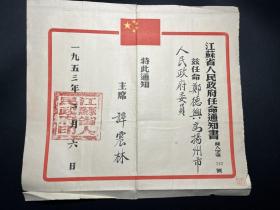 江蘇省人民政府任命通知書
茲任命鄭德興為揚州市
人民政府委員
特此通知
主席 譚震林
一九五三年 月 六日
江蘇省人民政府印